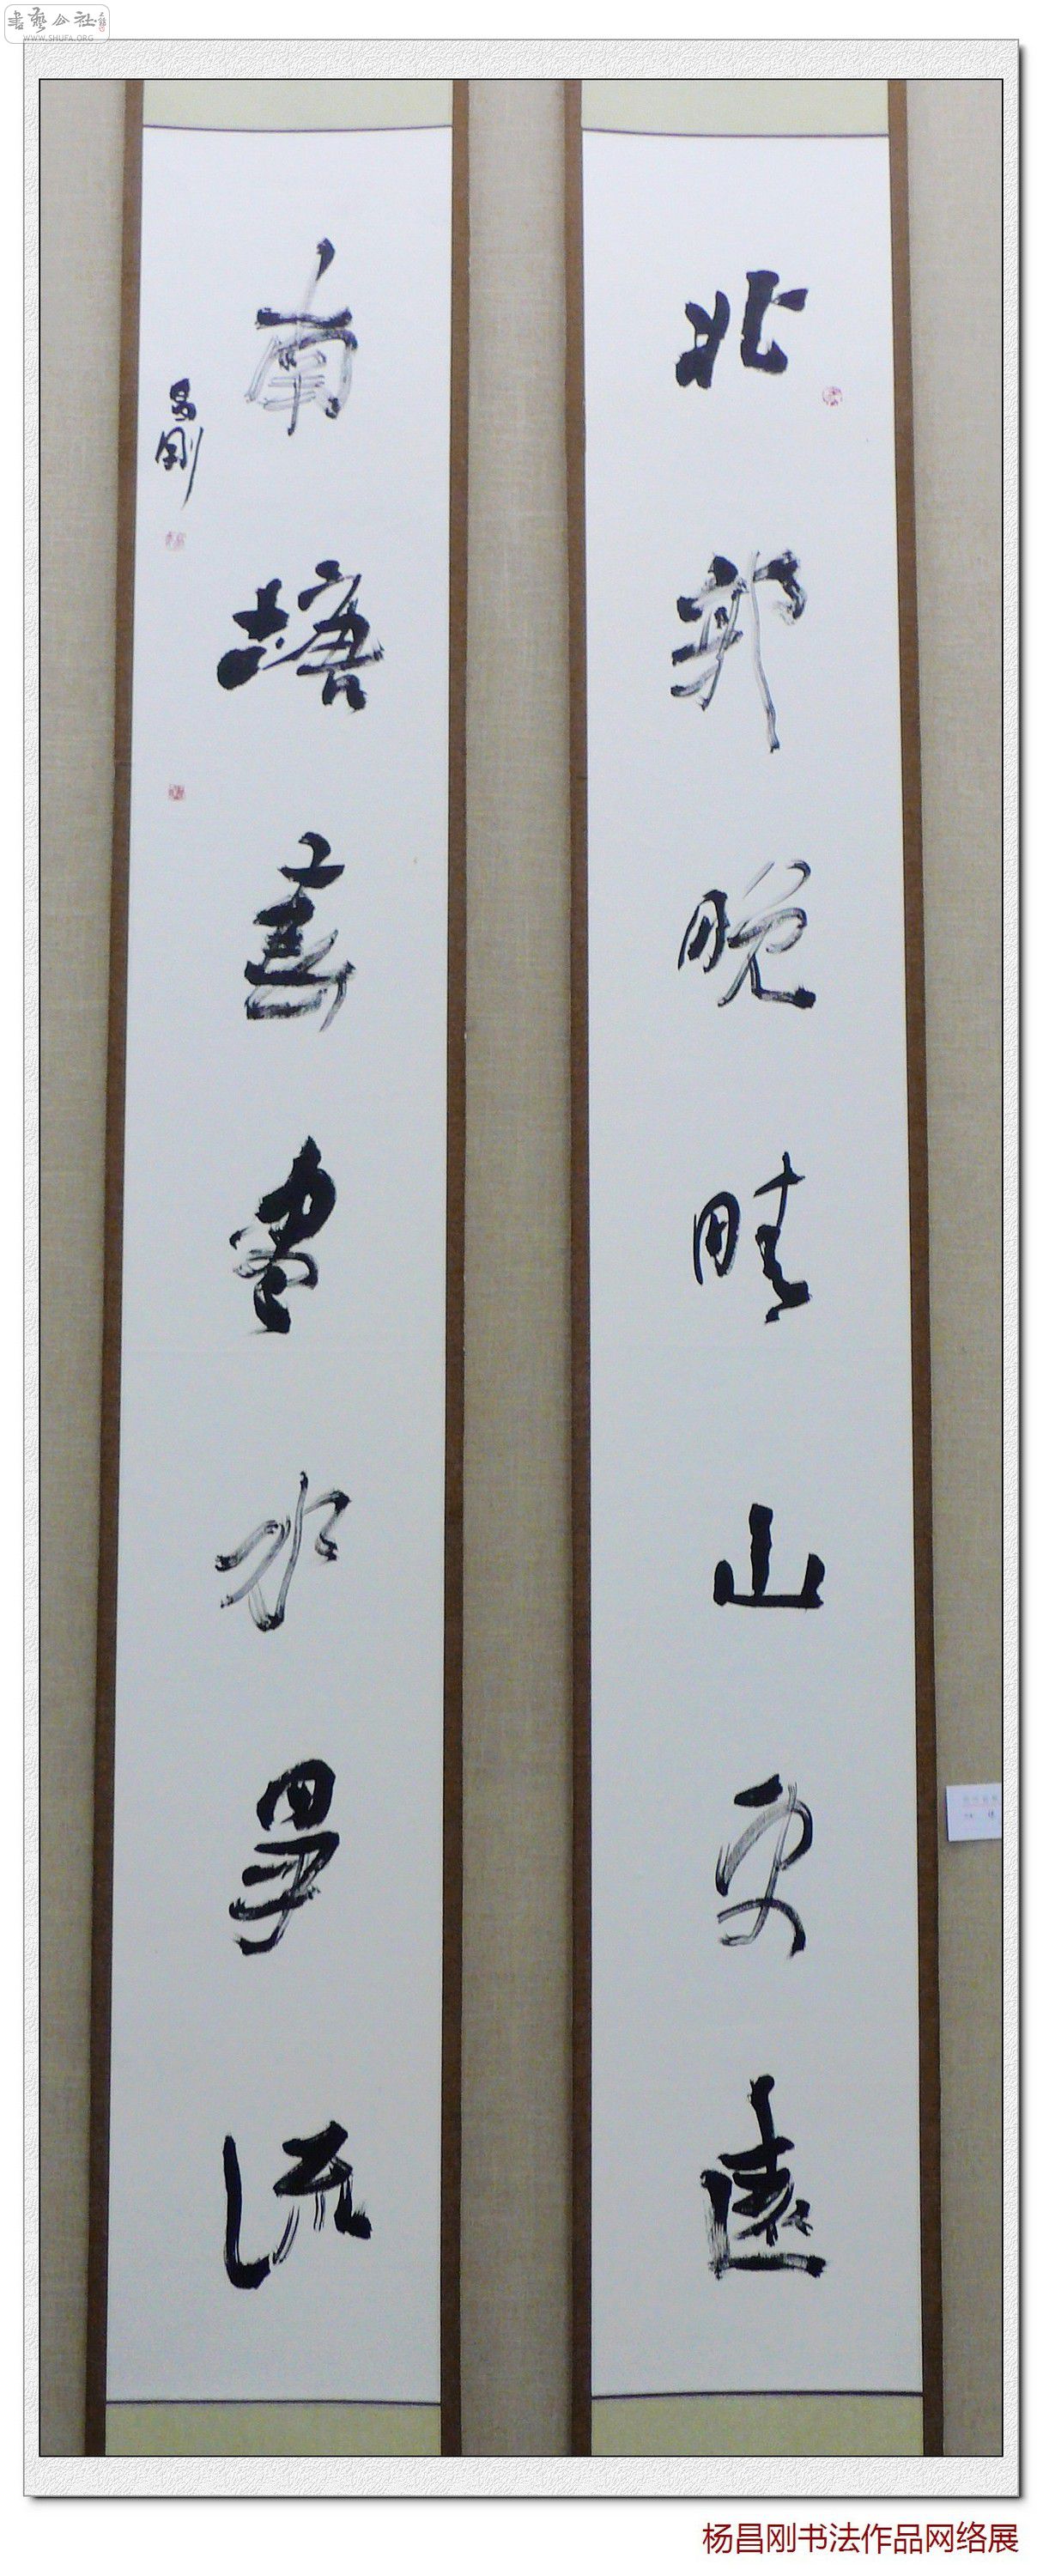 書藝公社
WWW.SHUFA.ORG
北郭晚晴山更遠
南塘春盡水爭流
昌剛
杨昌刚书法作品网络展